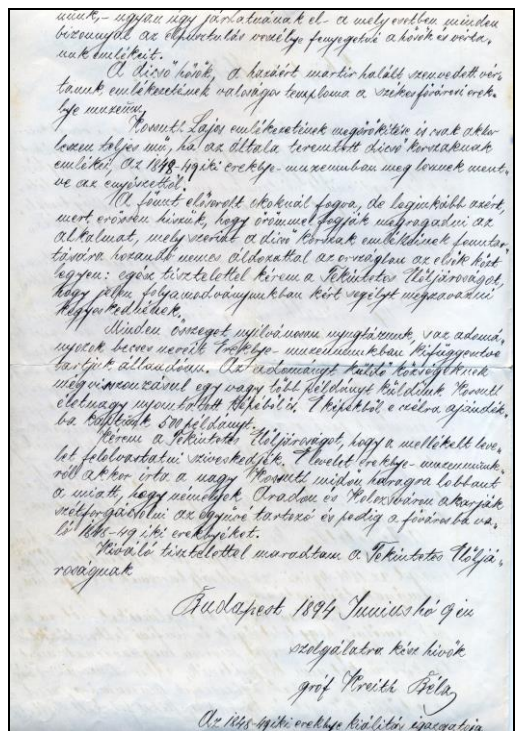 nünk, – ugyan úgy járhatnának el – a mely esetben minden
bizonnyal az elpusztulás veszélye fenyegetné a hősök és vérta-
nuk emlékeit.
A dicső hősök, a hazáért martir halált szenvedett vér-
tanuk emlékezetének valóságos temploma a székesfővárosi erek-
lye muzeum.
Kossuth Lajos emlékezetének megörökitése is csak akkor
leszen teljes mű, ha az általa teremtett dicső korszaknak
emlékei, az 1848-49iki ereklye-muzeumban meg lesznek ment-
ve az enyészettől.
A fönnt elősorolt okoknál fogva, de leginkább azért,
mert erőssen hiszük, hogy örömmel fogják megragadni az
alkalmat, mely szerint a dicső korszak emlékeinek fenntar-
tására hozandó nemes áldozattal az országban az elsők közt
legyen: egész tisztelettel kérem a Tekintetes Elöljároságot,
hogy jelen folyamodványunkban kért segélyt megszavazni
kegyeskedjenek.
Minden összeget nyilvánosan nyugtázunk, s az adomá-
nyozok becses neveit Ereklye-muzeumunkban kifüggesztve
tartjuk állandóan. Az adományt küldő községeknek
megviszonzásul egy vagy több példányt küldünk Kossuth
életnagy nyomtatott képéből is. E képekből e célra ajándék-
ba kaptunk 500 példányt.
Kérem a Tekintetes Elöljároságot, hogy a mellékelt leve-
let felolvastatni sziveskedjék. E levelet ereklye-muzeumunk-
ról akkor irta a nagy Kossuth midőn haragra lobbant
a miatt, hogy némelyek Aradon és Kolozsváron akarják
szétforgácsolni az együvé tartozó és pedig a fővárosba va-
ló 1848-49iki ereklyéket.
Kiváló tisztelettel maradtam a Tekintetes Elöljá-
roságnak
Budapest 1894 Junius hó 9én
szolgálatra kész hivök
gróf Kreith Béla
Az 1848-49iki ereklye kiállitás igazgatója